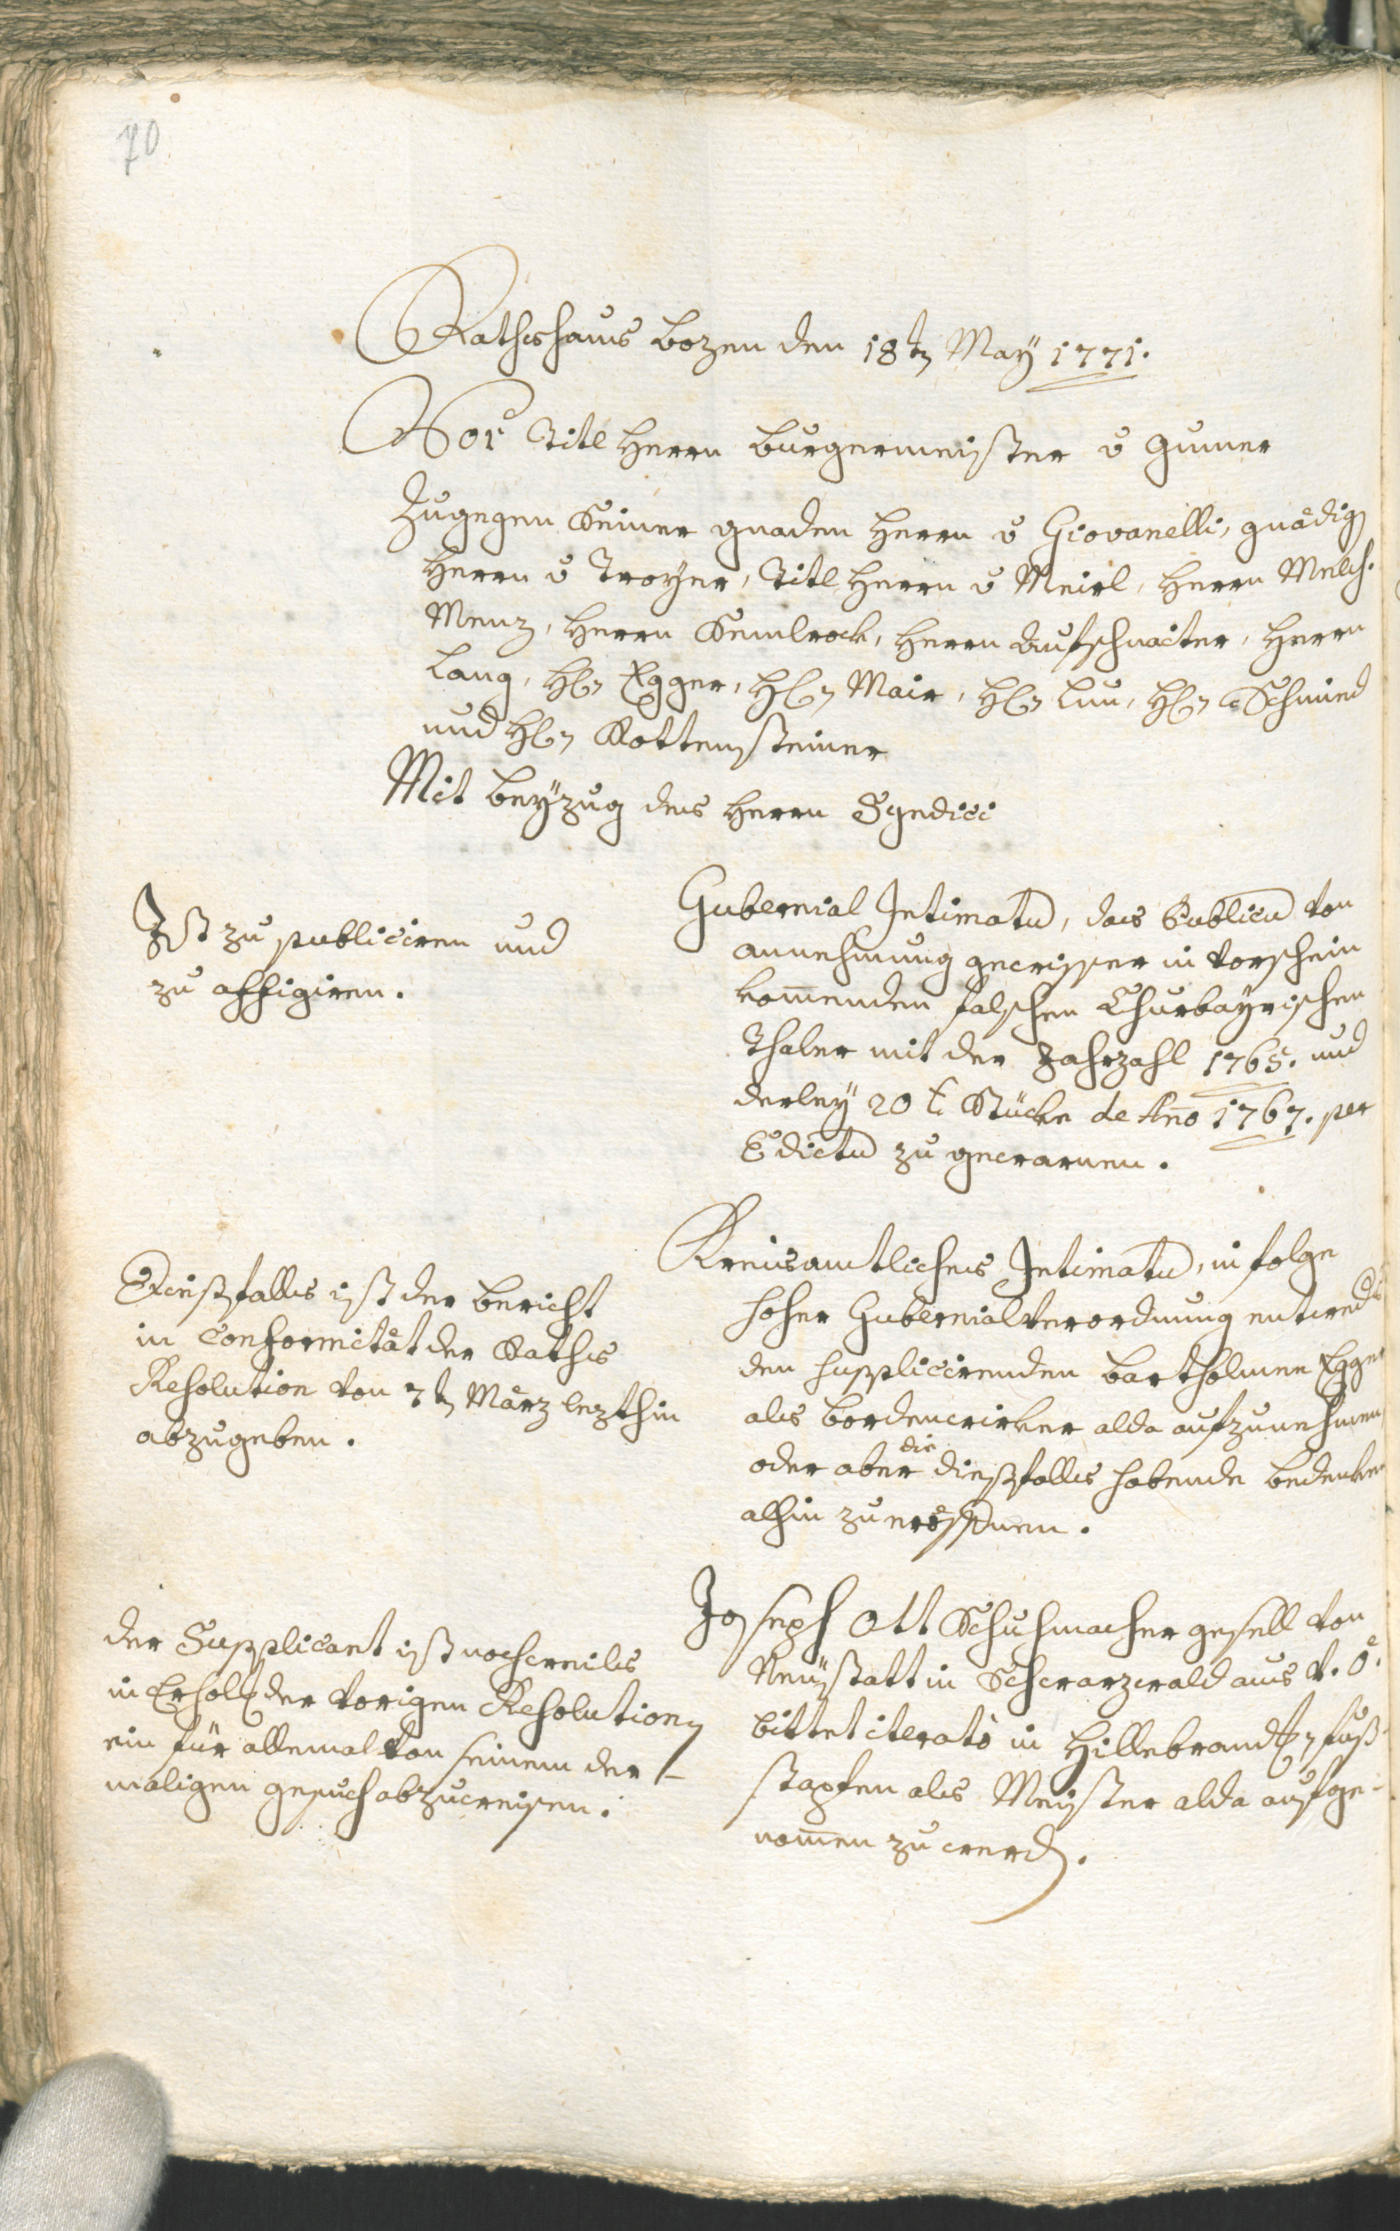 70
Rathshaus bozen den 18tn Maÿ 1771.
Vor Titl Herrn burgermeister v gumer
Zugegen Seiner gnaden Herrn v Giovanelli, gnädig
Herrn v Troÿer, Titl Herrn v Meirl, Herrn Melch.
Menz, Herrn Kemlrock, Herrn Aufschnaiter, Herrn
Lang, H Egger, H Mair, H Lun, H Schmid
und H Rottensteiner
Mit beÿzug des Herrn Syndici
Ist zu publiciren und
zu affigiren.
Gubernial Intimatu, das Publicu von
annehmung gewisser in vorschein
komenden falschen Churbaÿrischen
Thaler mit der Jahrzahl 1765. und
derleÿ 20 k Stücke de Ano 1767. per
Edictu zu gewarnen.
Diesfalls ist der bericht
in Conformität der Raths
Resolution von 7tn März lezthin
abzugeben.
Kreisamtliches Intimatu, in folge
hoher Gubernialverordnung entweds
den supplicirenden Bartholmee Egger
als bordenwirker alda aufzunehmen
oder aber die diesfalls habende bedenken
alhin zu eröffnen.
der Supplicant ist nochweils
in Erholl der vorigen Resolution
ein für allemal von seinem der-
maligen gesuch abzuweisen.
Joseph Ott Schuhmacher gesell von
Neüstatt in Schwarzwald aus V. Ö.
bittet iterato in Hillebrandt fuß-
stapfen als Meister alda aufge-
nomen zu werd.